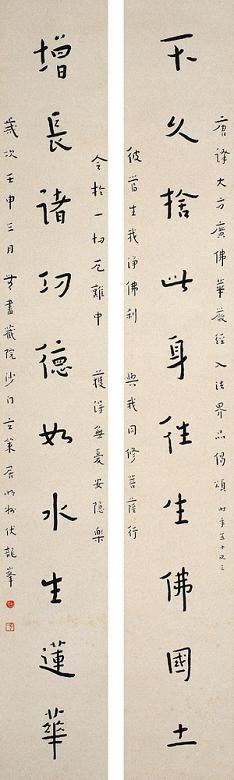 唐譯大方廣佛華嚴經入法界品偈頌 時年五十又三
不久捨此身往生佛國土
彼當生我淨佛剎 與我同修菩薩行
令於一切厄難中 獲得無憂安隱樂
增長諸功德如水生蓮華
歲次壬申三月 書藏院沙門 居 伏龍峯